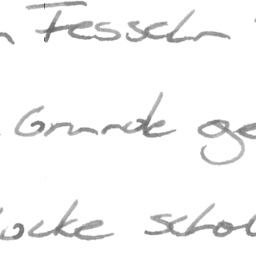 n Fesseln
Grunde ge
locke schol